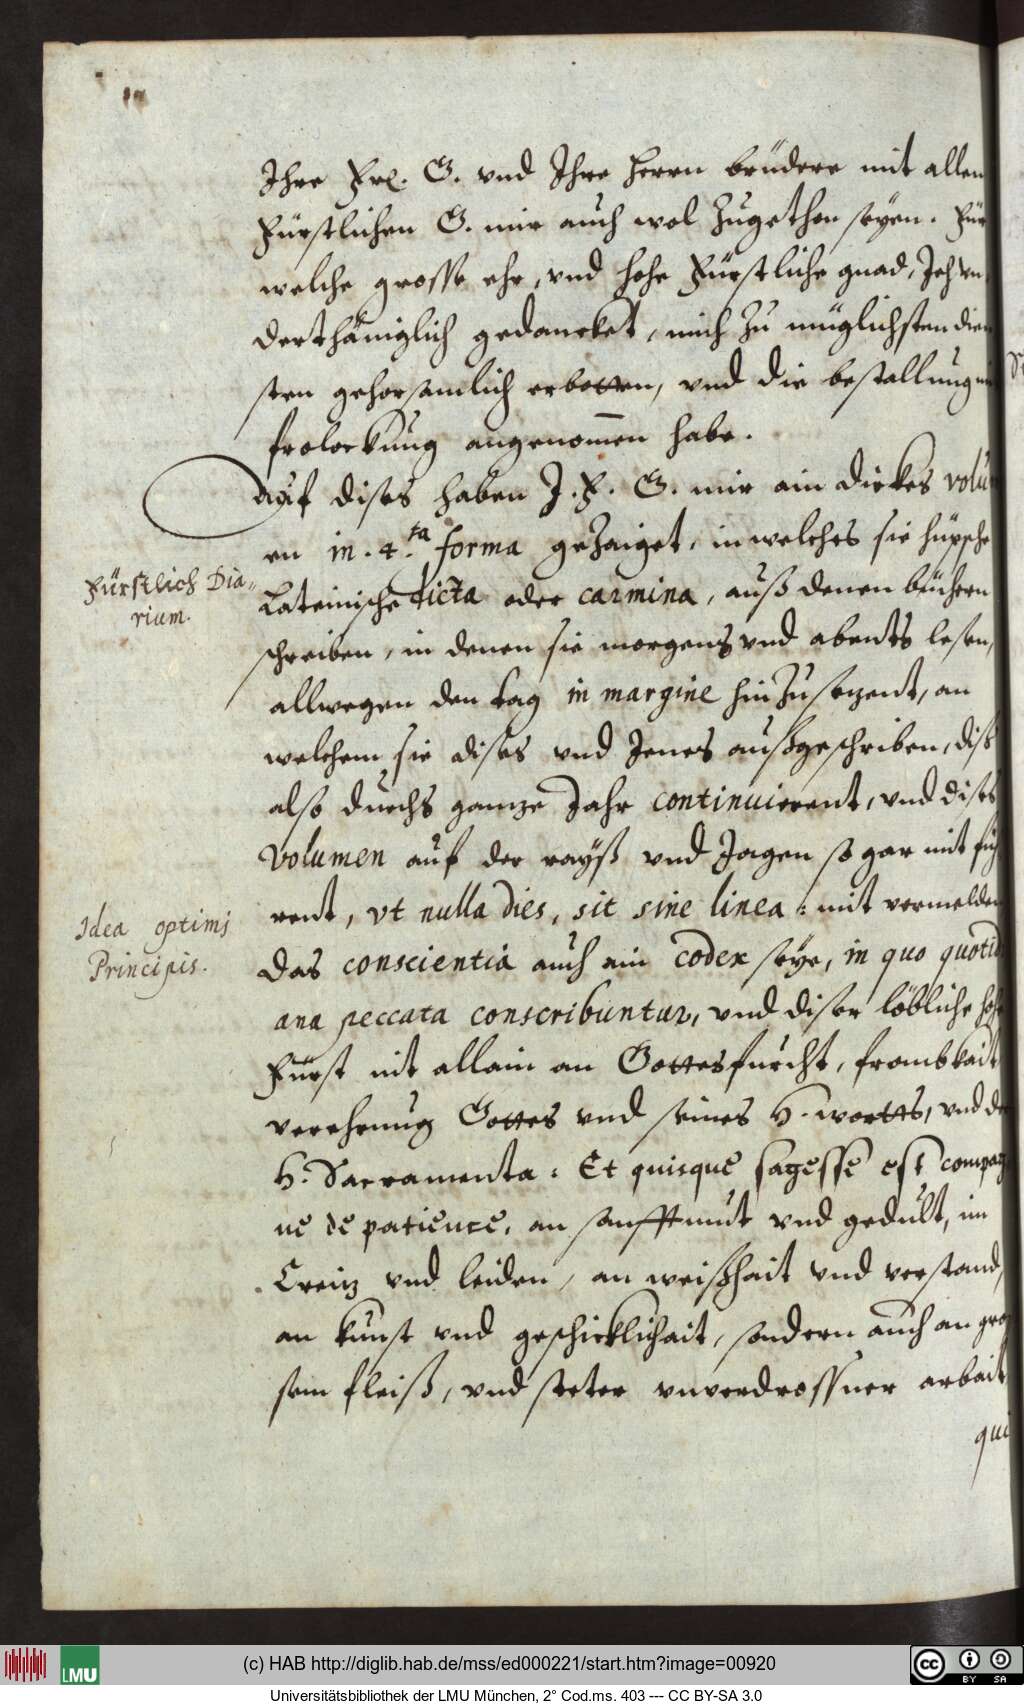 Ihre Frl. G. vnd Ihre Herrn brüdere mit allen
Fürstlichen G. mir auch wol zugethon seyen. Für
welche grosse ehr, vnd hohe Fürstliche gnad, Ich vn
derthäniglich gedancket, mich zu müglichsten dien
sten gehorsamlich erbotten, vnd die bestallung mi
frolockung angenom̅en habe.
Auf dises haben J. F. G. mir ain dickes volum
en in . 4.ta forma gezaiget, in welches sie hüpsche
Fürstlich Dia-
rium.
Lateinische dicta oder carmina, auß denen büchern
schreiben, in denen sie morgens vnd abents lesen,
allwegen den tag in margine hinzusezent, an
welchem sie dises vnd Jenes außgeschriben, diß
also durchs ganze Jahr continuierent, vnd dises
Volumen auf der rayß vnd Jagen so gar mit füh
rent, vt nulla dies, sit sine linea : mit vermelden
Idea optimj
Principis.
das conscientia auch ain codex seye, in quo quotid
ana peccata conscribuntur, vnd diser löbliche hohe
Fürst nit allain an Gottesfurcht, frombkait
verehrung Gottes vnd seines H. wortts, vnd der
H. Sacramenta : Et quisque sagesse est compag
ne de patience, an sanfftmut vnd gedult, im
Creitz vnd leiden, an weißhait vnd verstand,
an kunst vnd geschicklichait, sondern auch an gros
sem fleiß, vnd steter vnverdrossner arbait
qui
LMU
(c) HAB http://diglib.hab.de/mss/ed000221/start.htm?image=00920
CC BY SA
Universitätsbibliothek der LMU München, 2° Cod.ms. 403 --- CC BY-SA 3.0